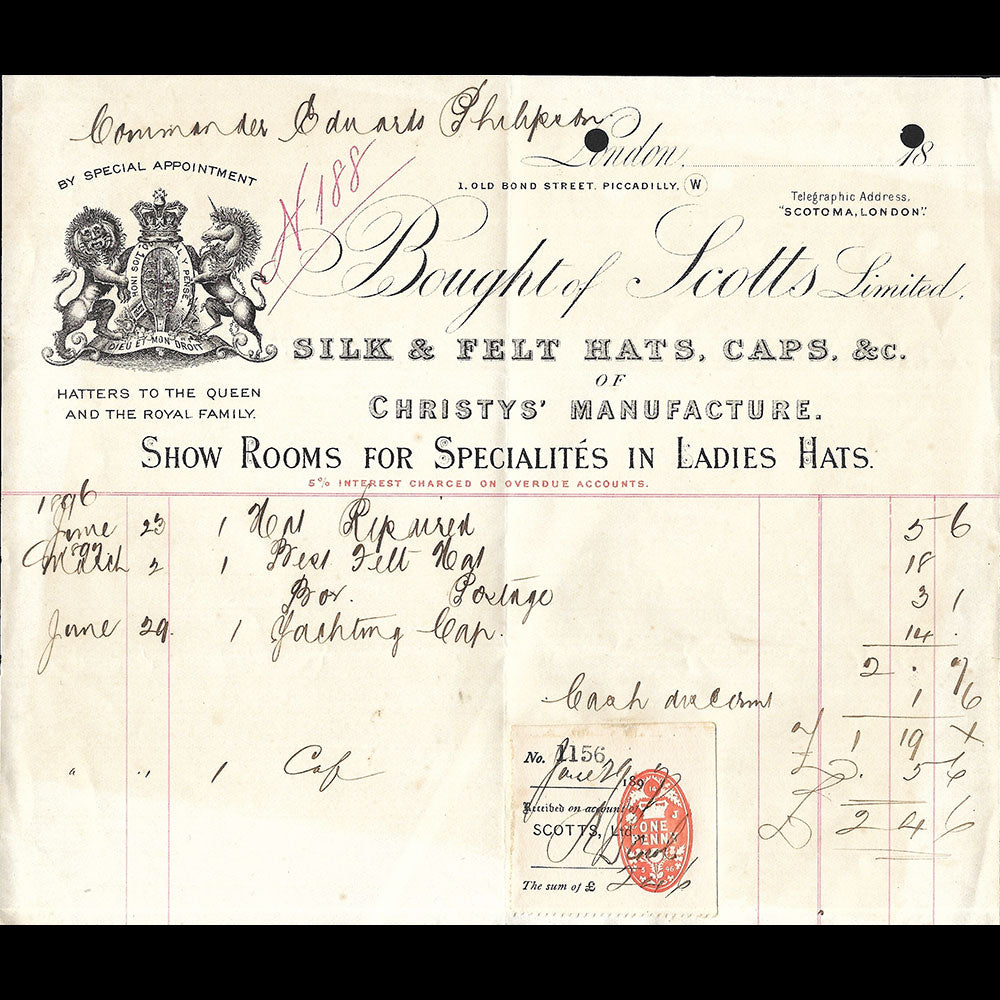 Commander Eduards Philipson
London, 18
BY SPECIAL APPOINTMENT
1. OLD BOND STREET. PICCADILLY. W
Telegraphic Address,
"SCOTOMA, LONDON".
188
Bought of Scotts Limited.
HONI SOIT QUI MAL Y PENSE
DIEU ET MON DROIT
SILK & FELT HATS, CAPS, &c.
OF
HATTERS TO THE QUEEN
AND THE ROYAL FAMILY.
CHRISTYS' MANUFACTURE.
SHOW ROOMS FOR SPECIALITÉS IN LADIES HATS.
5% INTEREST CHARGED ON OVERDUE ACCOUNTS.
1896
June 23 1 Hat Repaired 5 6
1897
March 2 1 Best Felt Hat 18
Box. Postage 3 1
June 29. 1 Yachting Cap. 14 .
2 . 7
Cash discount 1 6
£ 1 19 1
" " 1 Cap 5 6
£ 2 4 6
No. 1156
June 29 1897
Received on account of
SCOTTS, Ltd
ONE PENNY
The sum of £